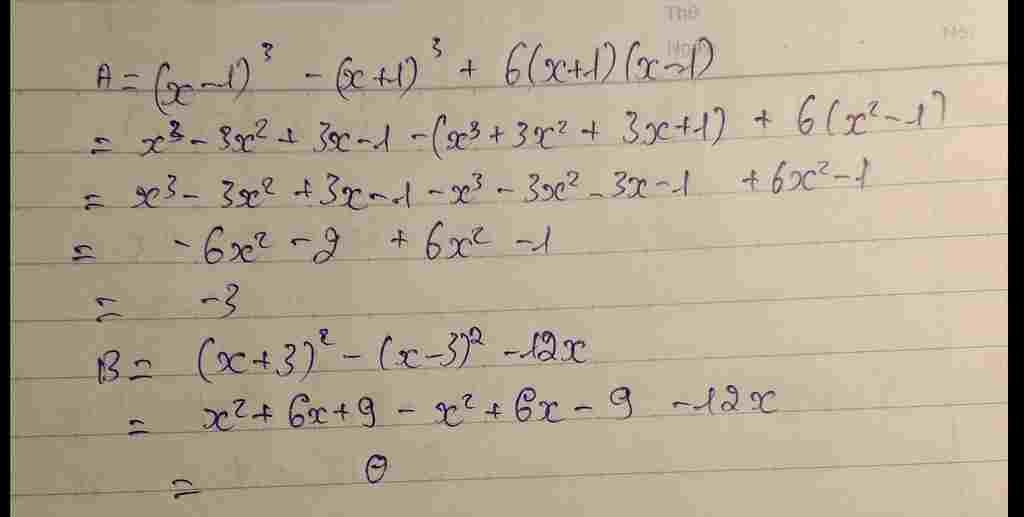 Thứ
No.
A = (x-1)³ - (x+1)³ + 6(x+1)(x-1)
= x³ - 3x² + 3x - 1 - (x³ + 3x² + 3x + 1) + 6(x² - 1)
= x³ - 3x² + 3x - 1 - x³ - 3x² - 3x - 1 + 6x² - 1
= - 6x² - 2 + 6x² - 1
= -3
B = (x+3)² - (x-3)² - 12x
= x² + 6x + 9 - x² + 6x - 9 - 12x
= 0